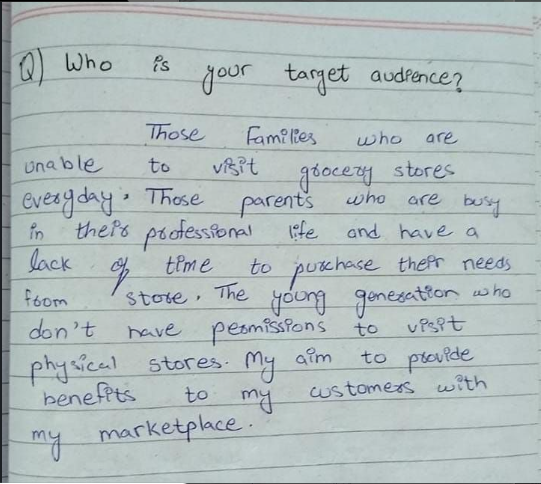 Q) Who is your target audience?
Those Families who are
unable to visit grocery stores
everyday. Those parents who are busy
in their professional life and have a
lack of time to purchase their needs
from store. The young generation who
don't have permissions to visit
physical stores. My aim to provide
benefits to my customers with
my marketplace.